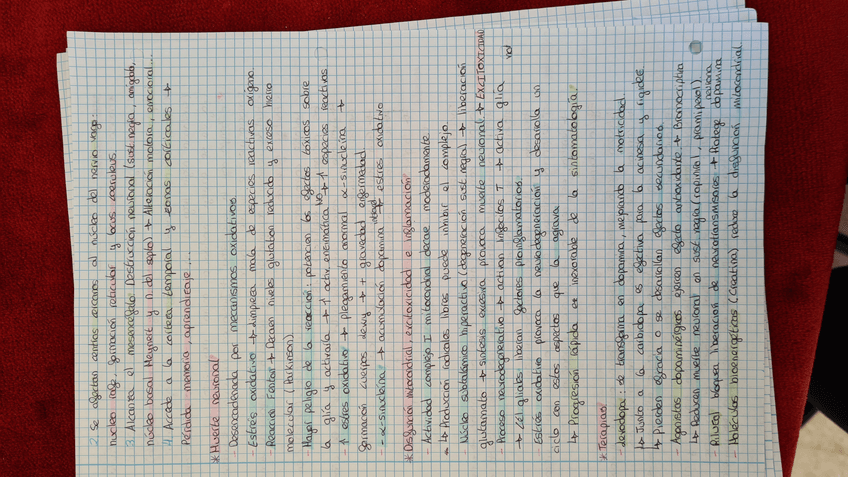 2. Se afectan centros cercanos al núcleo del nervio vago:
núcleo rafe, formación reticular y locus coeruleus.
3. Alcanza el mesencéfalo: Destrucción neuronal (sust. negra, amígdala,
núcleo basal Meynert y n. del septo) → Alteración motora, emocional...
4. Accede a la corteza temporal y zonas corticales →
Pérdida memoria, aprendizaje...
* Muerte neuronal
- Desencadenada por mecanismos oxidativos
Estrés oxidativo → Limpieza mala de especies reactivas oxígeno.
Reacción Fenton → Decaen niveles glutation reducido y exceso hierro
molecular (Parkinson)
- Mayor peligro de la reacción: potencian los efectos tóxicos sobre
la glía y activarla → ↑ activ. enzimática NO → ↑ especies reactivas
- ↑ estrés oxidativo → plegamiento anormal α-sinucleína →
formación cuerpos Lewy → + gravedad enfermedad
- α-sinucleína → acumulación dopamina → estrés oxidativo
* Disfunción mitocondrial, excitotoxicidad e inflamación
- Actividad complejo I mitocondrial decae moderadamente
↳ Producción radicales libres puede inhibir el complejo.
- Núcleo subtalámico hiperactivo (degeneración sust. negra) → liberación
glutamato → síntesis excesiva provoca muerte neuronal → EXCITOTOXICIDAD
- Proceso neurodegenerativo → activan linfocitos T → activa glía
→ Cél. gliales liberan factores proinflamatorios.
Estrés oxidativo provoca la neurodegeneración y desarrolla un
ciclo con estos aspectos que la agrava
↳ Progresión rápida e inexorable de la sintomatología.
* Terapias
- Levodopa: se transforma en dopamina, mejorando la motricidad.
↳ Junto a la carbidopa es efectiva para la acinesia y rigidez
↳ Pierden eficacia o se desarrollan efectos secundarios.
- Agonistas dopaminérgicos ejercen efecto antioxidante → Bromocriptina
↳ Reducen muerte neuronal en sust. negra (ropinirol, pramipexol)
- Riluzol bloquea liberación de neurotransmisores → Protege neurona dopamina
- Moléculas bioenergéticas (Creatina) reduce la disfunción mitocondrial